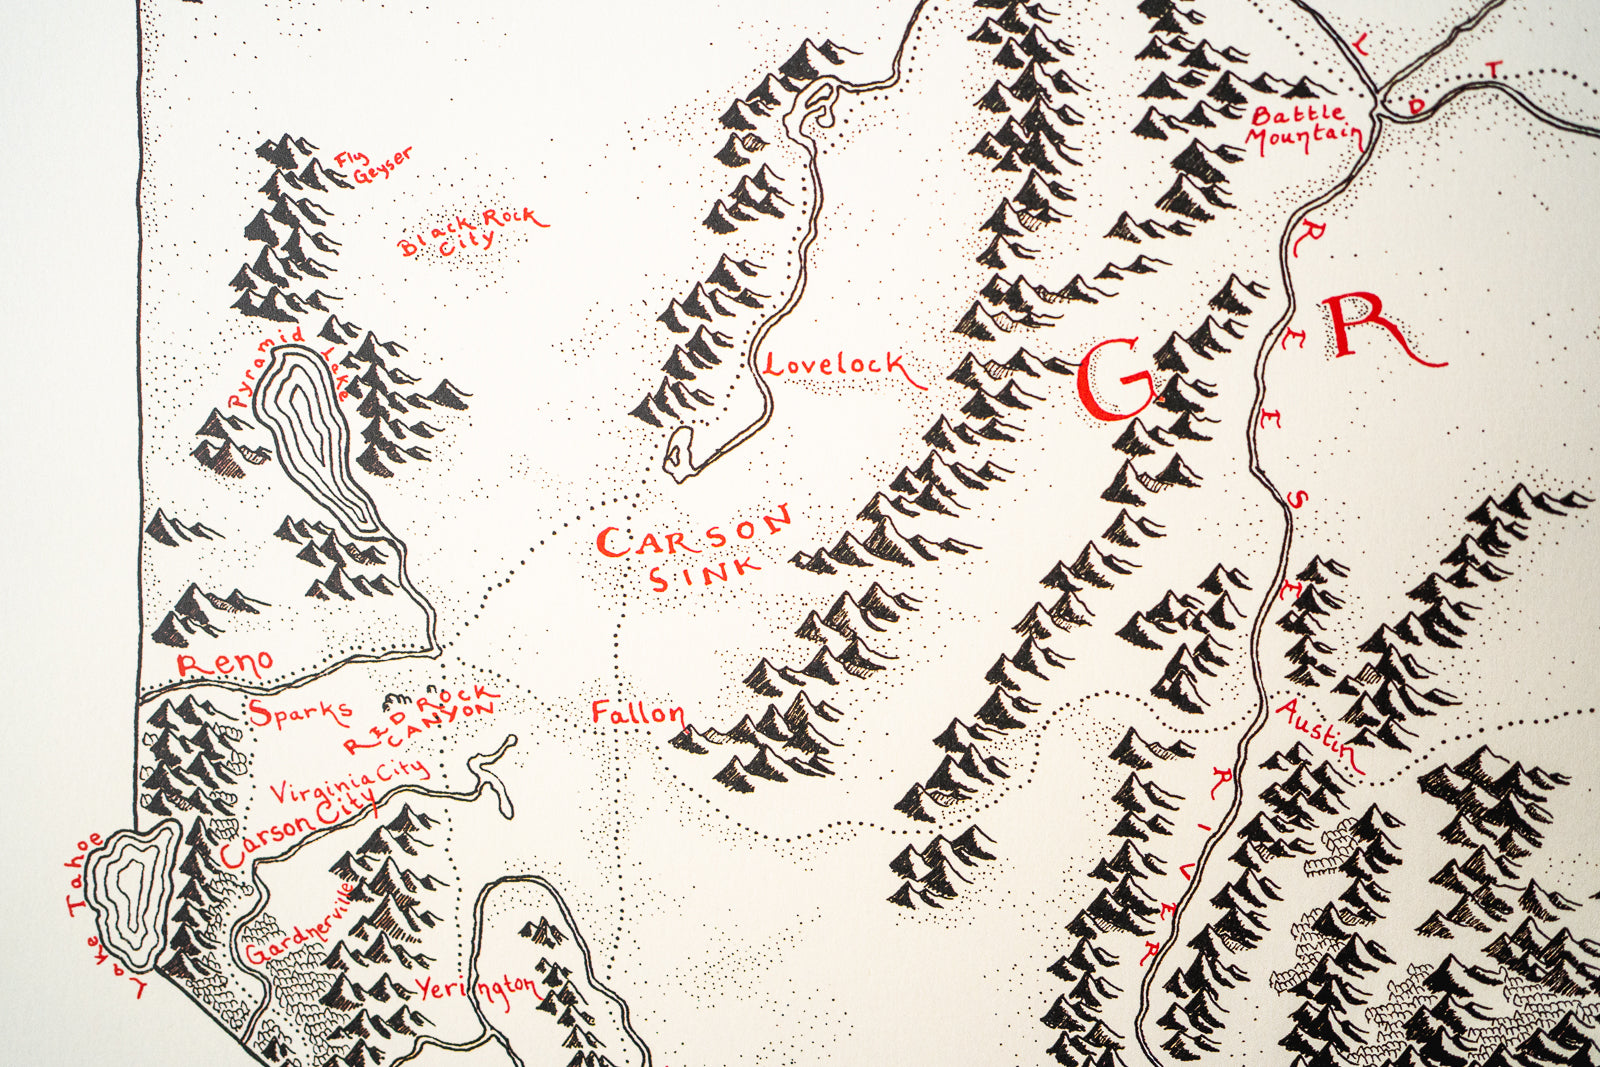 L
T
D
Battle
Mountain
Fly
Geyser
Black Rock
City
R
E
E
S
E
G R
Pyramid Lake
Lovelock
CARSON
SINK
Reno
Sparks
RED ROCK
CANYON
Fallon
Austin
Virginia City
Carson City
RIVER
Lake Tahoe
Gardnerville
Yerington